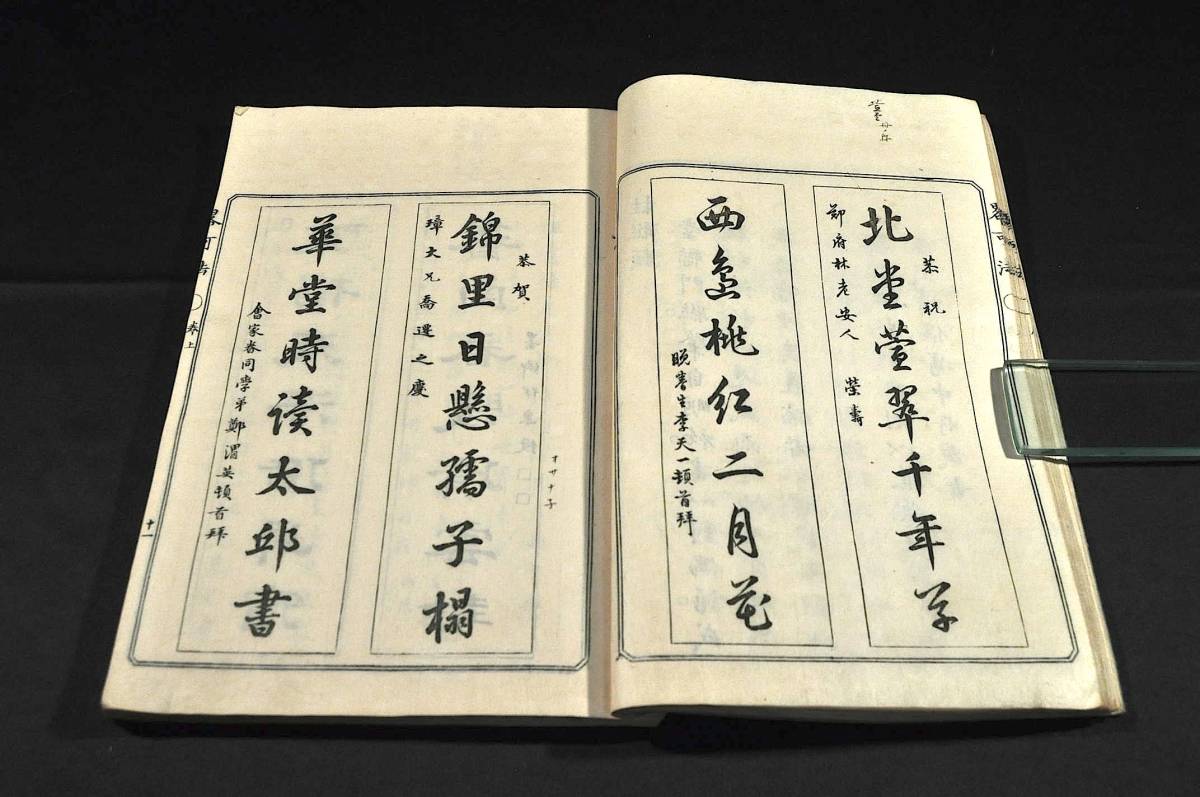 恭祝
北堂萱翠千年草
鄭府林老安人 榮壽
西島桃紅二月花
晚眷生李天一頓首拜
恭賀
錦里日懸孺子榻
璋大兄喬遷之慶
華堂時读太邱書
會家眷同學弟鄭渭英頓首拜
卷上
十一